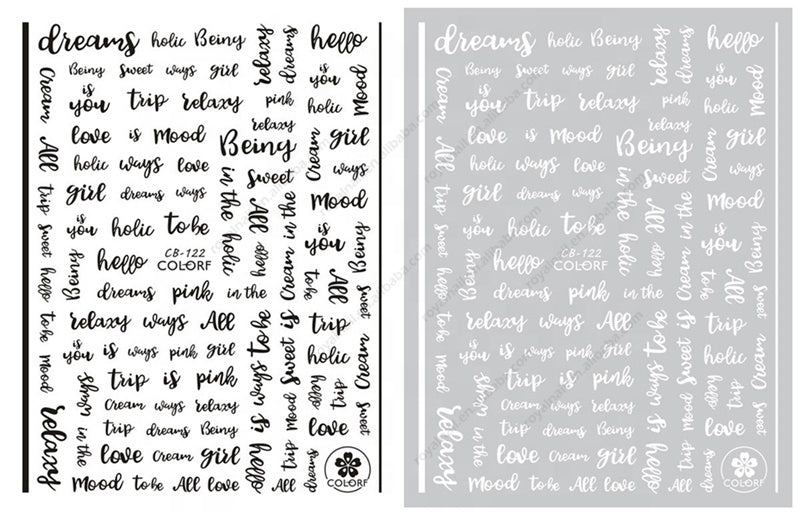 dreams holic Being relaxy dreams hello
Being Sweet ways girl
is
you trip relaxy pink
is
you
holic Mood
relaxy
love is Mood Being Cream girl
holic ways love Sweet ways
girl dreams ways in the holic All Mood
is
you holic to be
is
you Being
hello CB-122
COLORF
Cream All trip sweet hello to be Mood relaxy
Being
hello Cream in the
to be All Sweet
dreams pink in the
relaxy ways All to be Sweet is trip
is
you is ways pink girl holic Cream
trip is pink
ways in the
hello trip Sweet
Cream ways relaxy is ways
trip dreams Being love
love Cream girl hello trip Mood
dreams
Mood to be All love All
COLORF
dreams holic Being relaxy dreams hello
Being Sweet ways girl
is
you trip relaxy pink
is
you
holic Mood
relaxy
love is Mood Being Cream girl
holic ways love Sweet ways
girl dreams ways in the holic All Mood
is
you holic to be
is
you Being
hello CB-122
COLORF
Cream All trip sweet hello to be Mood relaxy
Being
hello Cream in the
to be All Sweet
dreams pink in the
relaxy ways All to be Sweet is trip
is
you is ways pink girl holic Cream
trip is pink
ways in the
hello trip Sweet
Cream ways relaxy is ways
trip dreams Being love
love Cream girl hello trip Mood
dreams
Mood to be All love All
COLORF